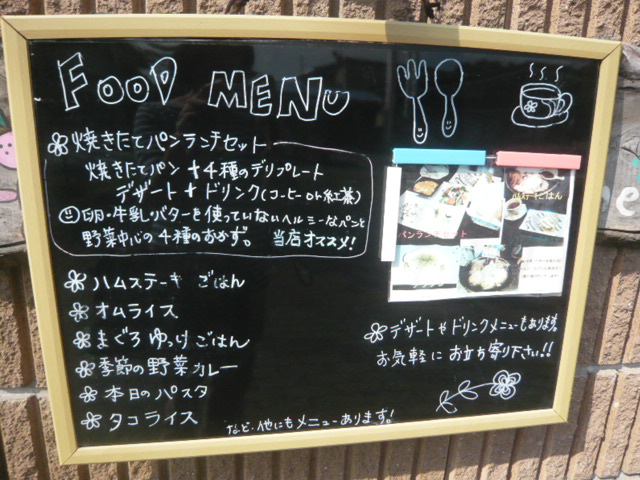 FOOD MENU
焼きたてパンランチセット
焼きたてパン+4種のデリプレート
デザート+ドリンク(コーヒー or 紅茶)
卵・牛乳・バターを使っていないヘルシーなパンと
野菜中心の4種のおかず。 当店オススメ!
ハムステーキ ごはん
オムライス
まぐろ ゆっけ ごはん
季節の野菜カレー
本日のパスタ
タコライス
など、他にもメニューあります!
パンランチセット
デザートやドリンクメニューもあります。
お気軽に お立ち寄り下さい!!